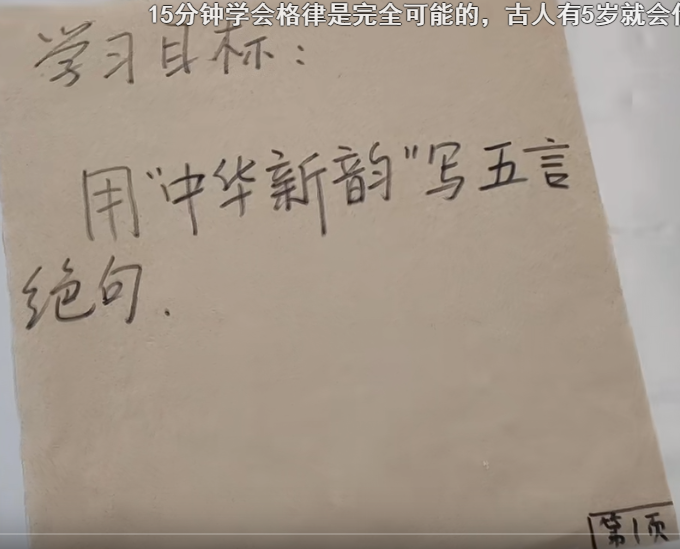 15分钟学会格律是完全可能的，古人有5岁就会
学习目标：
用“中华新韵”写五言
绝句.
第1页